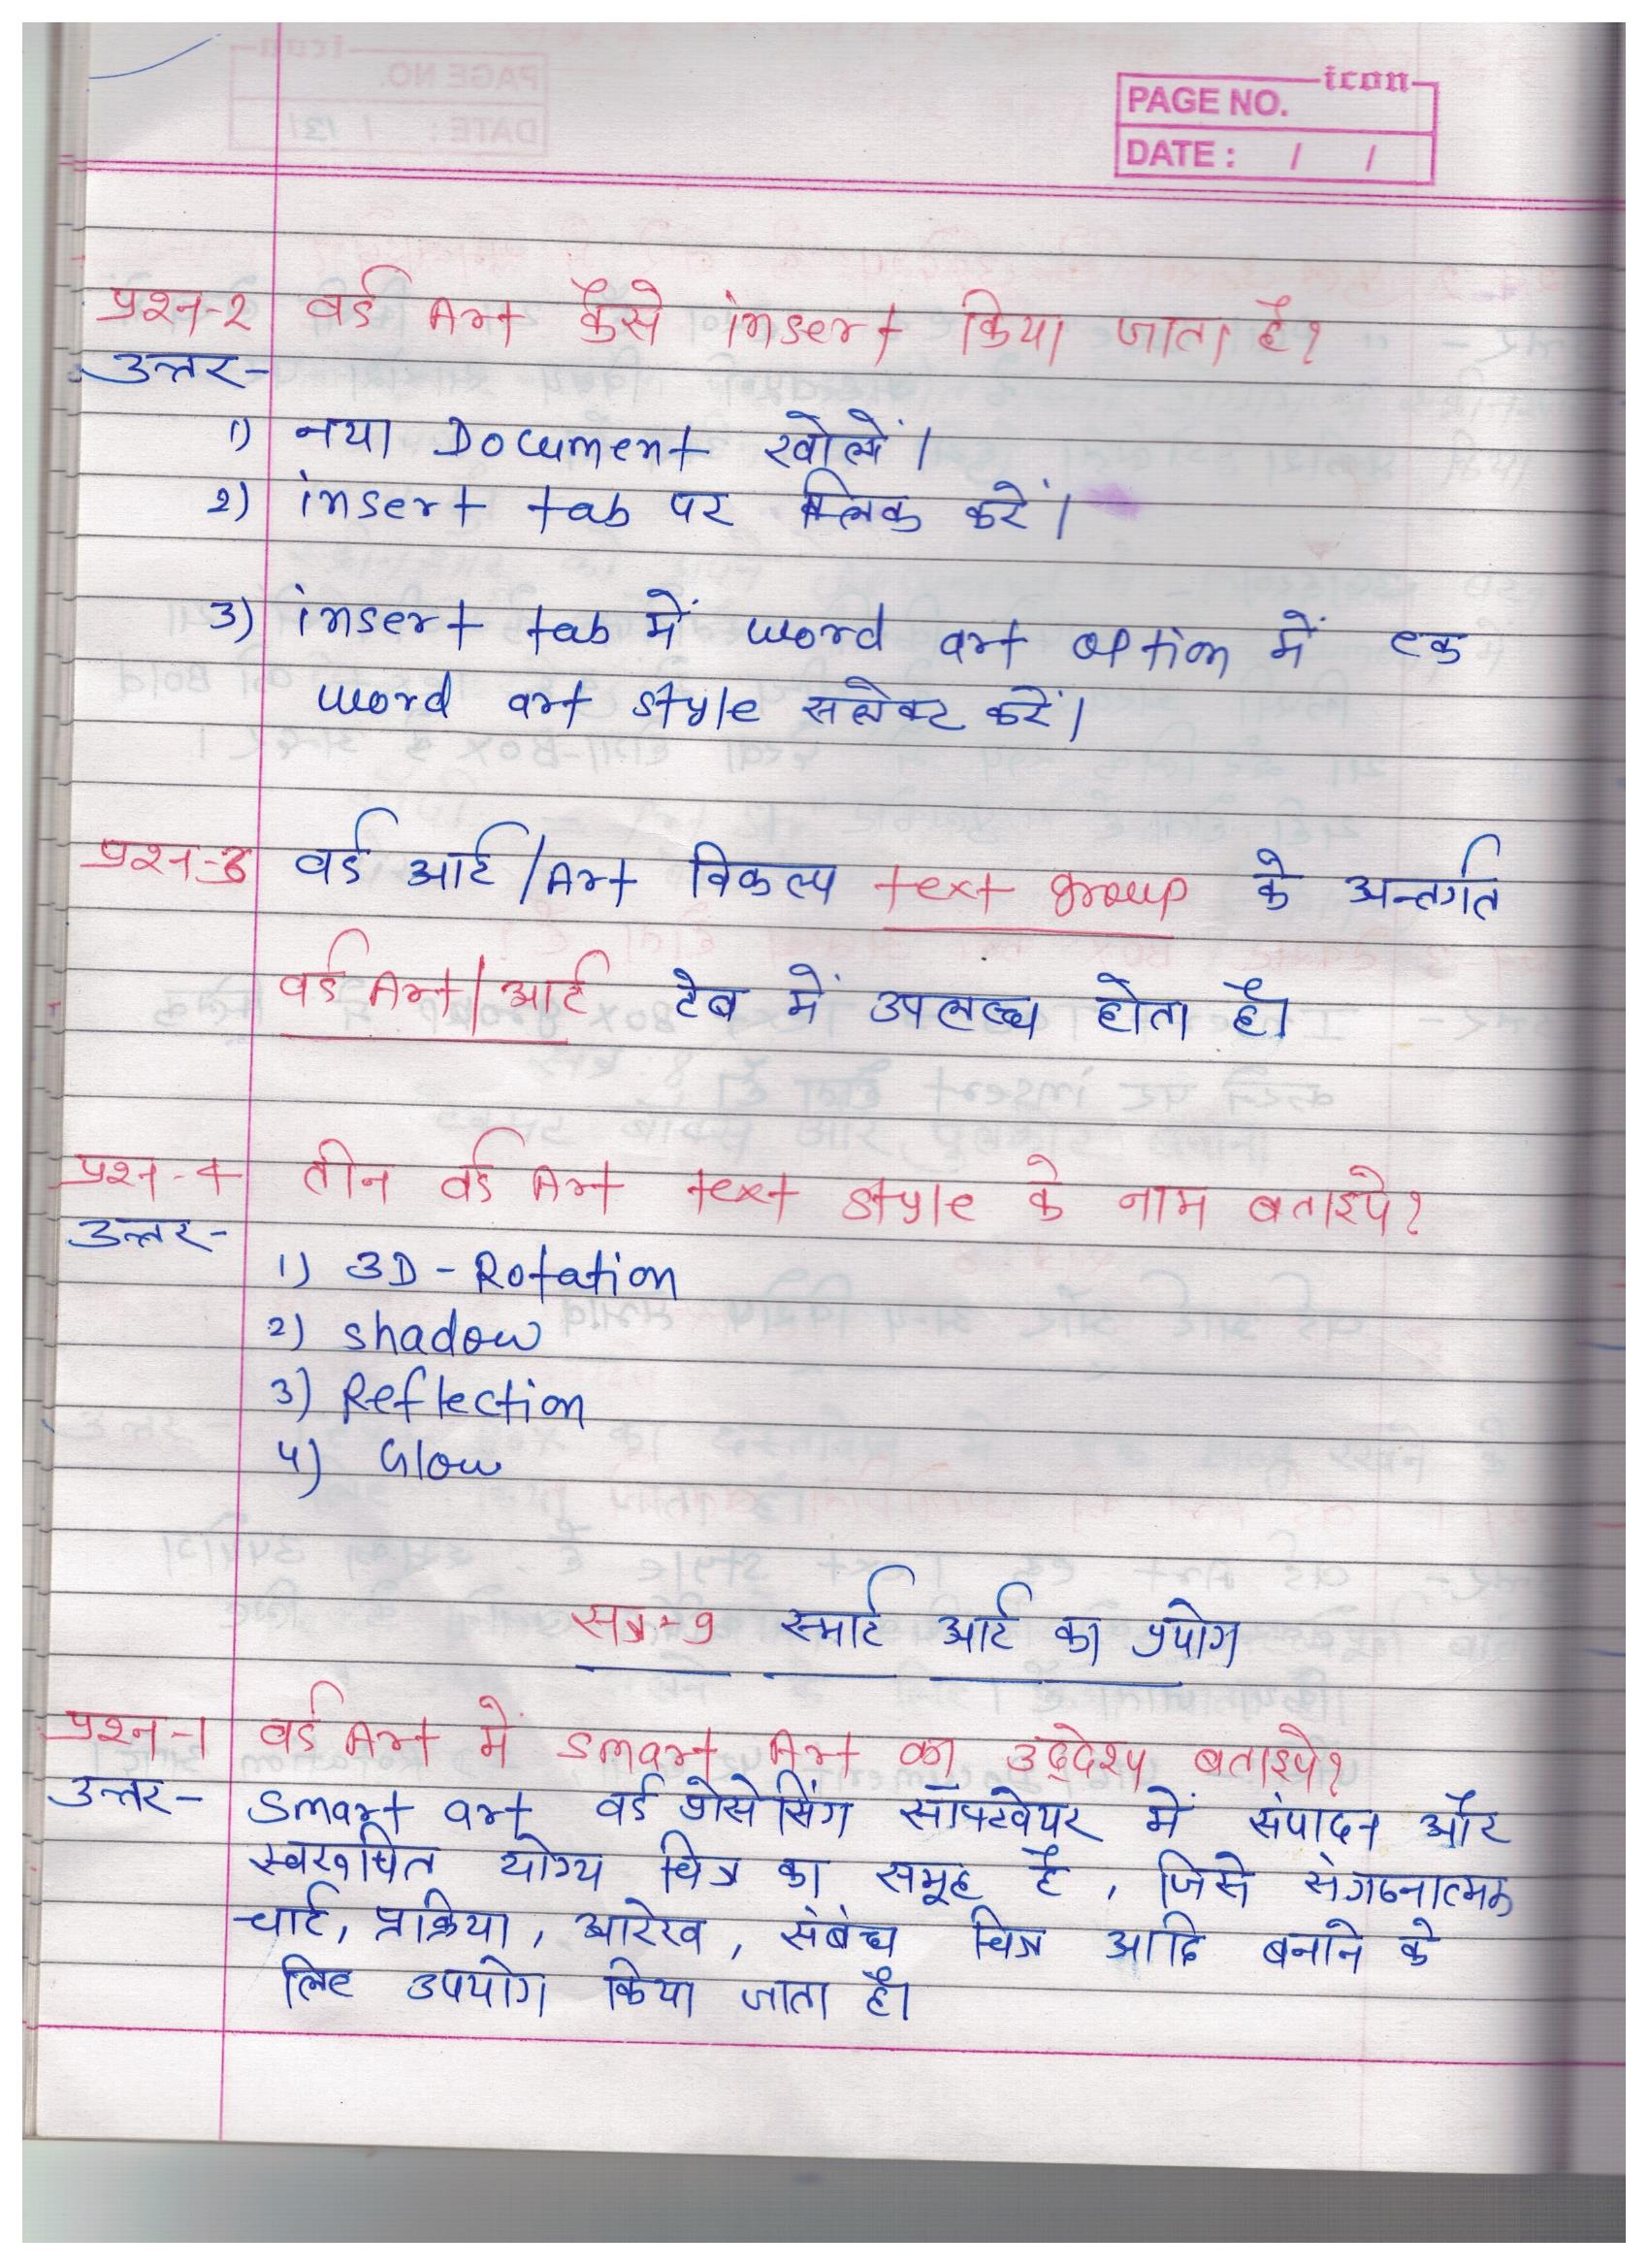 icon
PAGE NO.
DATE : / /
प्रश्न-2 वर्ड Art कैसे insert किया जाता है?
उत्तर-
1) नया Document खोलें।
2) insert tab पर क्लिक करें।
3) insert tab में word art option में एक
word art style सलेक्ट करें।
प्रश्न-3 वर्ड आर्ट/Art विकल्प text group के अन्तर्गत
वर्ड Art/आर्ट टेब में उपलब्ध होता है।
प्रश्न-4 तीन वर्ड Art text style के नाम बताइये?
उत्तर-
1) 3D-Rotation
2) shadow
3) Reflection
4) Glow
सत्र-9 स्मार्ट आर्ट का प्रयोग
प्रश्न-1 वर्ड Art में smart Art का उद्देश्य बताइये?
उत्तर- smart art वर्ड प्रोसेसिंग सॉफ्टवेयर में संपादन और
स्वरूपित योग्य चित्र का समूह है, जिसे संगठनात्मक
चार्ट, प्रक्रिया, आरेख, संबंध चित्र आदि बनाने के
लिए उपयोग किया जाता है।